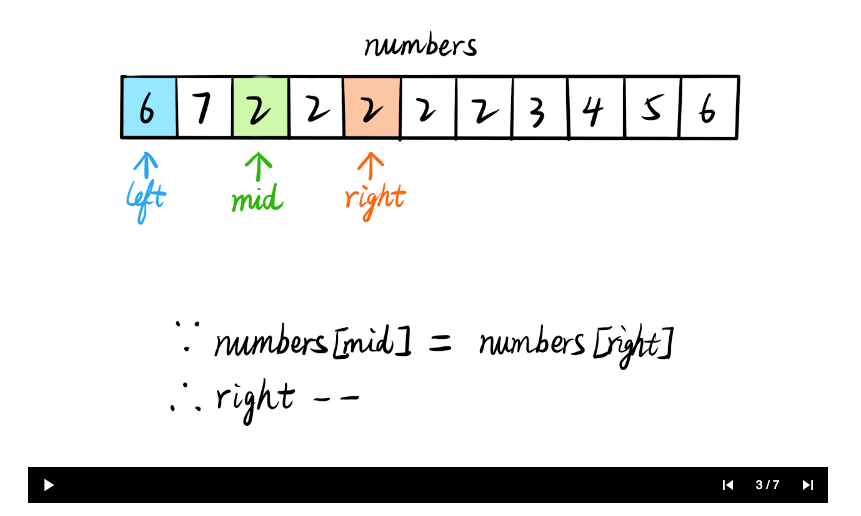 numbers
6 7 2 2 2 2 2 3 4 5 6
left mid right
∵ numbers[mid] = numbers[right]
∴ right --
3 / 7